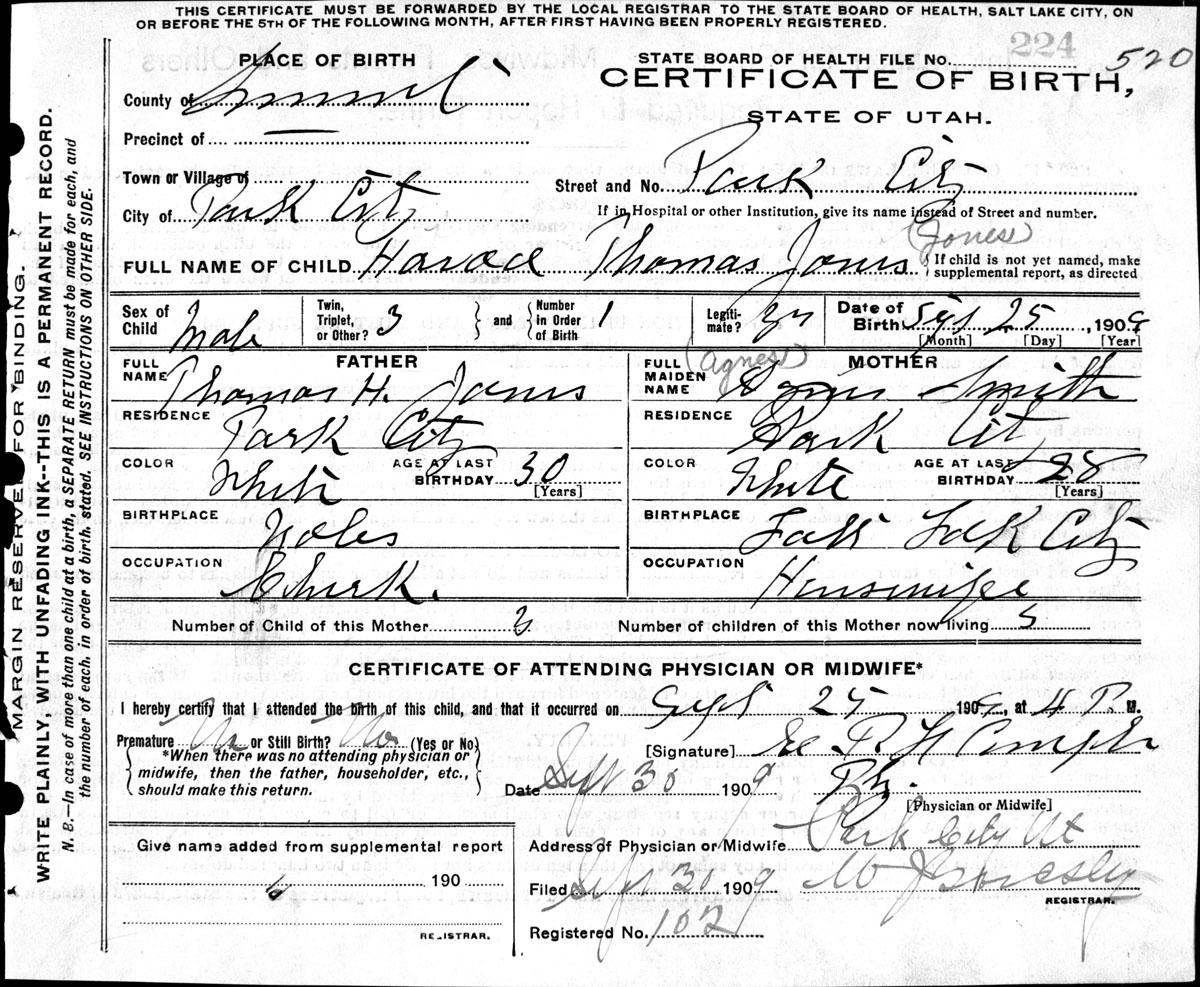 THIS CERTIFICATE MUST BE FORWARDED BY THE LOCAL REGISTRAR TO THE STATE BOARD OF HEALTH, SALT LAKE CITY, ON
OR BEFORE THE 5TH OF THE FOLLOWING MONTH, AFTER FIRST HAVING BEEN PROPERLY REGISTERED.
MARGIN RESERVED FOR BINDING.
WRITE PLAINLY, WITH UNFADING INK--THIS IS A PERMANENT RECORD.
N. B.—In case of more than one child at a birth, a SEPARATE RETURN must be made for each, and
the number of each, in order of birth, stated. SEE INSTRUCTIONS ON OTHER SIDE.
PLACE OF BIRTH
STATE BOARD OF HEALTH FILE No. 224 520
CERTIFICATE OF BIRTH,
STATE OF UTAH.
County of Summit
Precinct of
Town or Village of
City of Park City
Street and No. Park City
If in Hospital or other Institution, give its name instead of Street and number.
(Jones)
FULL NAME OF CHILD Harold Thomas Jones
If child is not yet named, make
supplemental report, as directed
Sex of Child Male
Twin, Triplet, or Other? 3
and
Number in Order of Birth 1
Legiti-mate?
Date of Birth 25, 1909
[Month] [Day] [Year]
FATHER
FULL NAME Thomas H. Jones
RESIDENCE Park City
COLOR White
AGE AT LAST BIRTHDAY 30
[Years]
BIRTHPLACE
OCCUPATION
(Agnes)
MOTHER
FULL MAIDEN NAME Agnes Smith
RESIDENCE Park City
COLOR White
AGE AT LAST BIRTHDAY 28
[Years]
BIRTHPLACE Salt Lake City
OCCUPATION Housewife
Number of Child of this Mother 3
Number of children of this Mother now living 3
CERTIFICATE OF ATTENDING PHYSICIAN OR MIDWIFE*
I hereby certify that I attended the birth of this child, and that it occurred on Sept 25 1909, at 4 P. M.
Premature No or Still Birth? No (Yes or No)
*When there was no attending physician or
midwife, then the father, householder, etc.,
should make this return.
[Signature]
Date Sept 30 1909
[Physician or Midwife]
Address of Physician or Midwife Park City Ut
Give name added from supplemental report
190
REGISTRAR.
Filed Sept 30 1909
REGISTRAR.
Registered No. 102